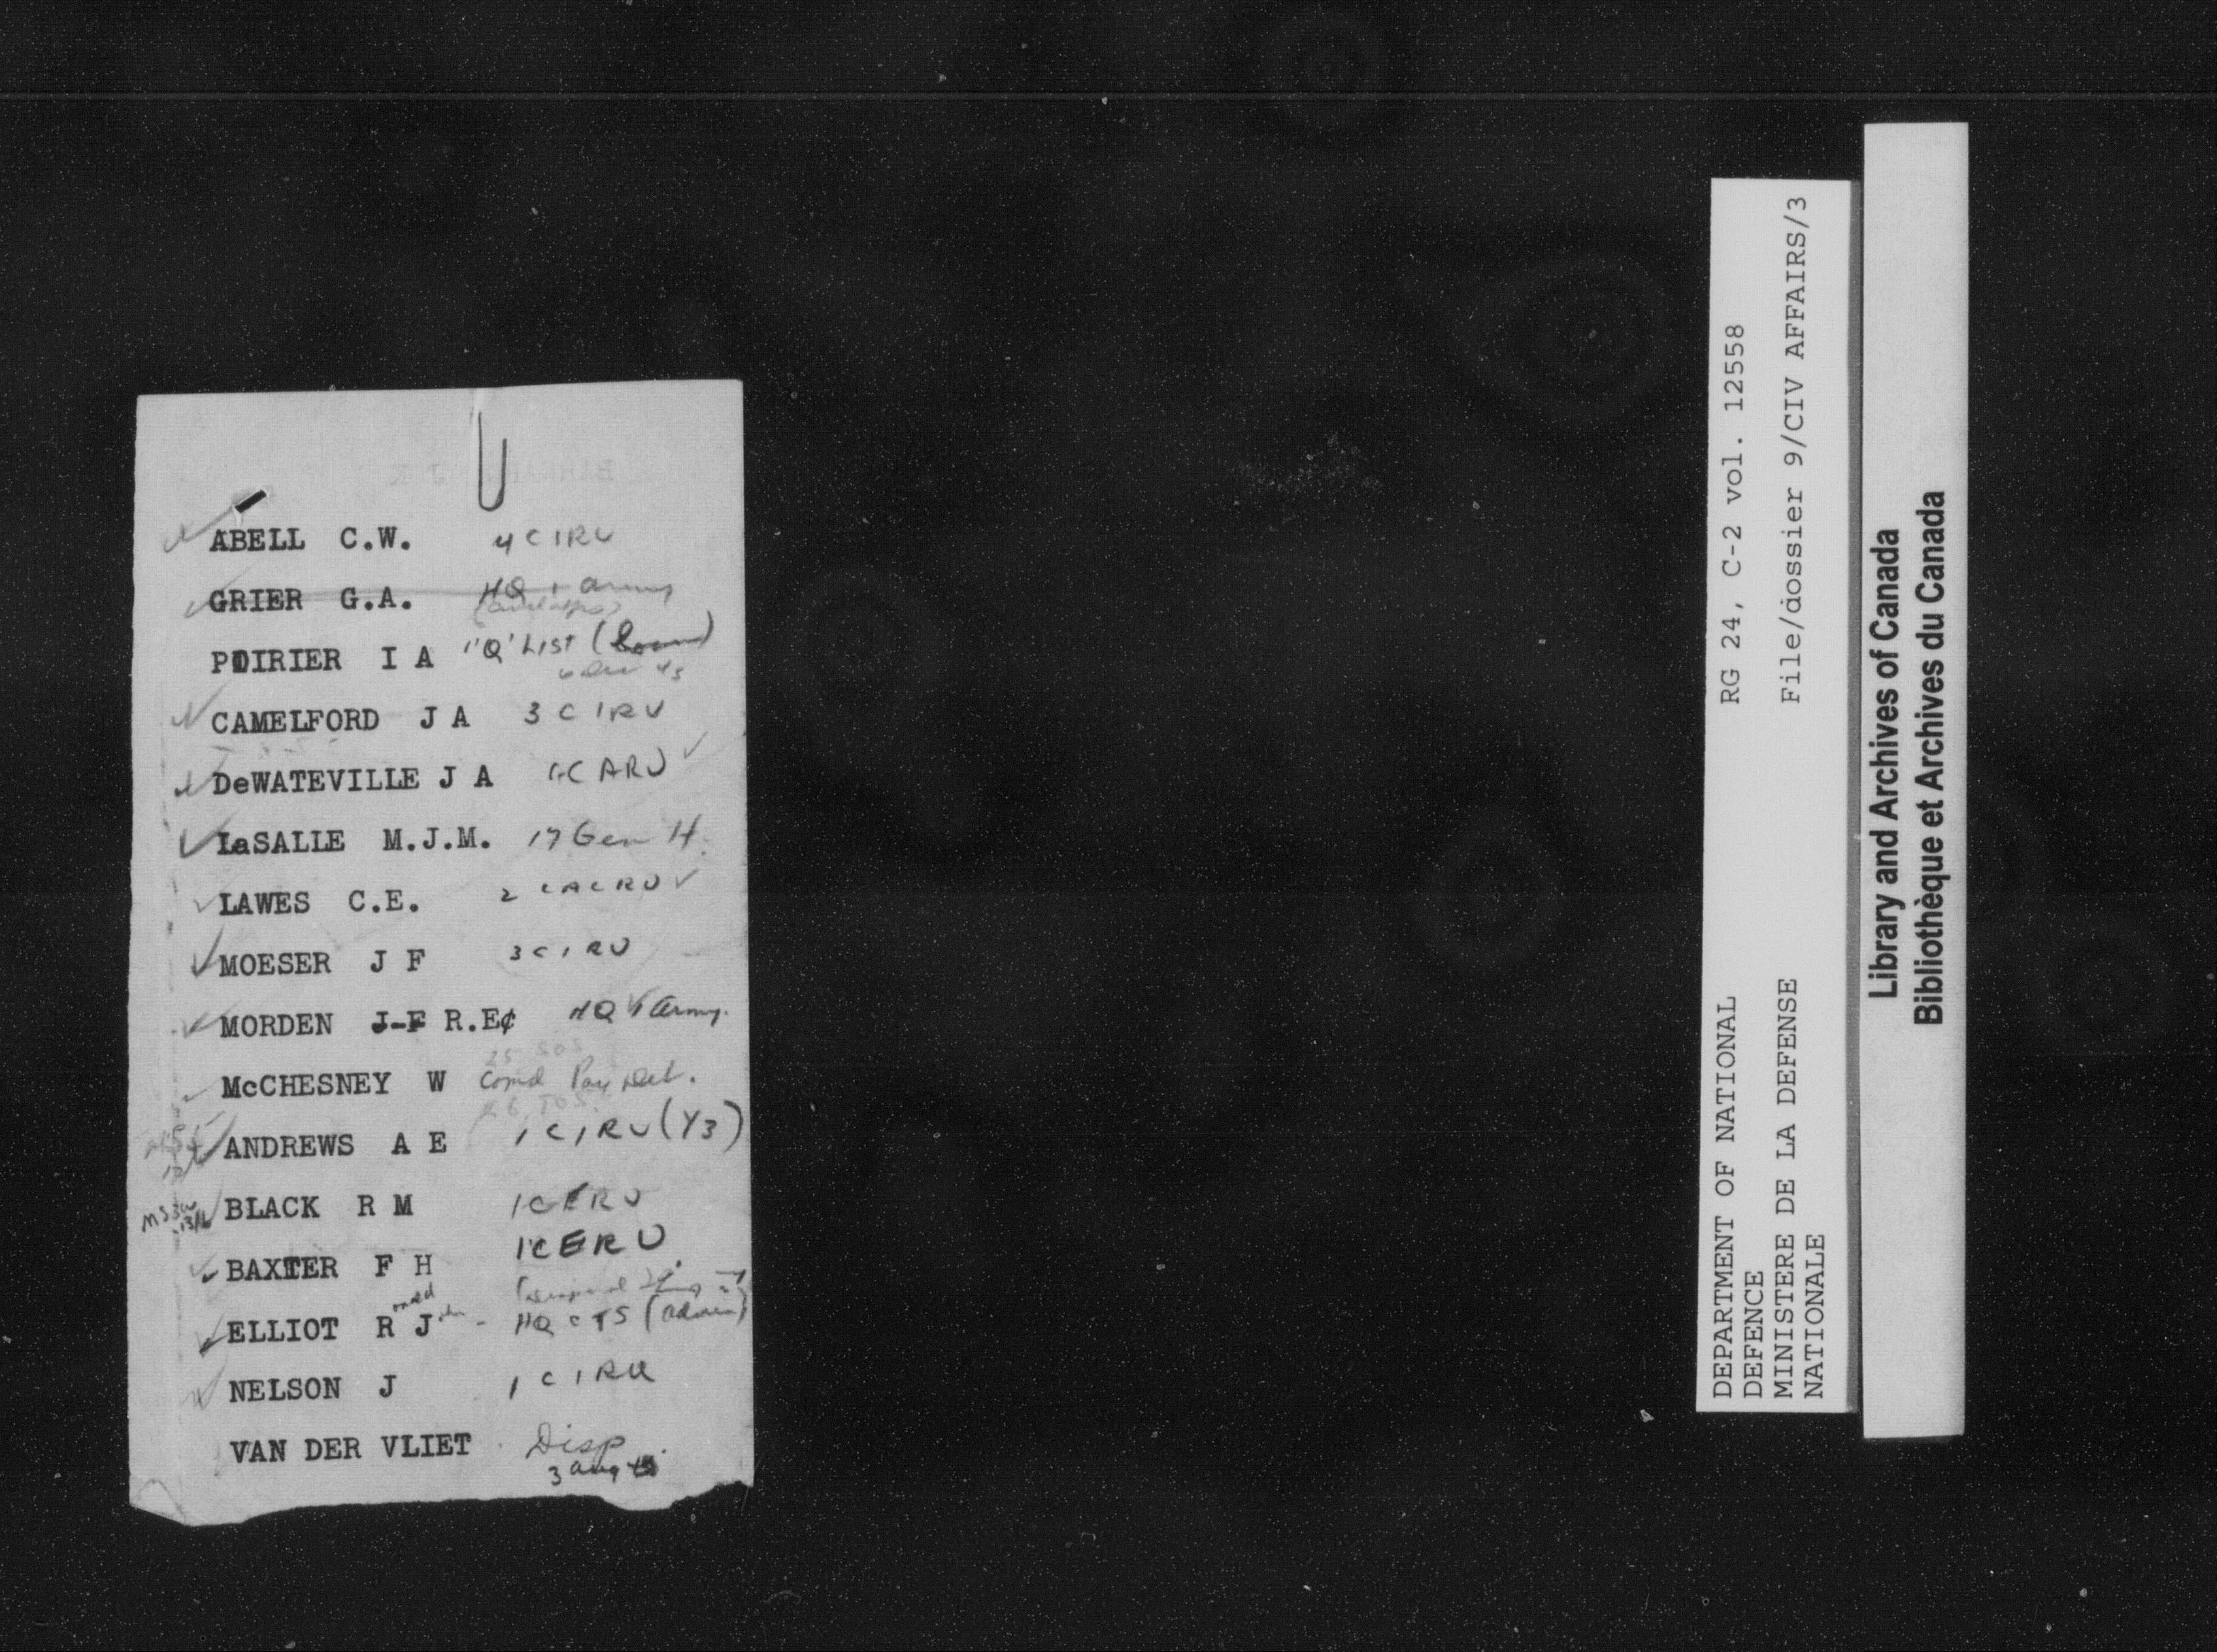 ABELL C.W. 4 CIRU
GRIER G.A. HQ 1 Army
POIRIER I A "Q' LIST
CAMELFORD J A 3 CIRU
DeWATEVILLE J A 1 CARU
LaSALLE M.J.M. 17 Gen H.
LAWES C.E. 2 CACRU
MOESER J F 3 CIRU
25 SOS
MORDEN J-F R.E¢ HQ 1 Army.
McCHESNEY W Comd Pay Det.
26 TOS.
ANDREWS A E 1 CIRU (Y3)
BLACK R M 1 CERU
BAXTER F H 1 CERU
ELLIOT R J HQ CTS (Admin)
NELSON J 1 CIRU
VAN DER VLIET Disp
3 Aug 45
DEPARTMENT OF NATIONAL
DEFENCE
MINISTERE DE LA DEFENSE
NATIONALE
RG 24, C-2 vol. 12558
File/dossier 9/CIV AFFAIRS/3
Library and Archives of Canada
Bibliothèque et Archives du Canada